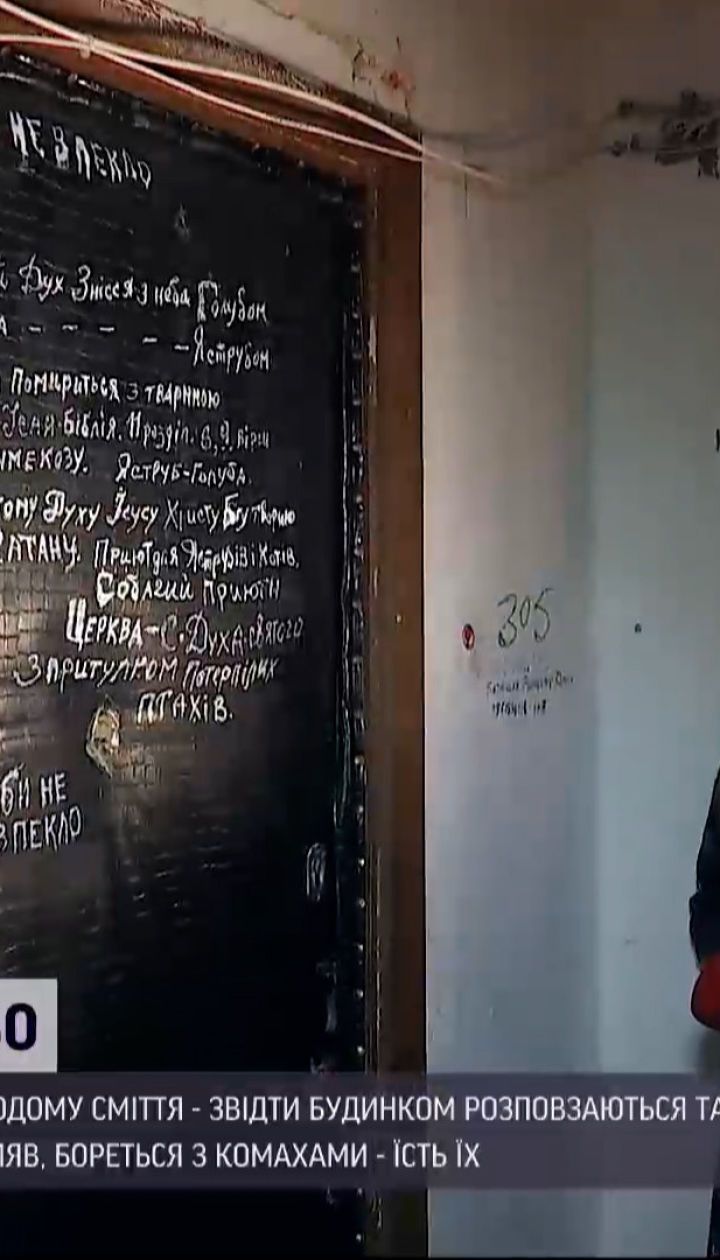 НЕ В ПЕКЛО
Дух Знісся з неба Голубом
А - - - - - Яструбом
Помириться з твариною
Біблія. 11 розділ. 6, 9. вірш
Яструб-Голуба.
Духу Ісусу Христу Богу творцю
САТАНУ. Приют для Яструбів і Котів.
Приюти
ЦЕРКВА-С. Духа-святого
З притулком Потерпілих
ПТАХІВ.
БИ НЕ
В ПЕКЛО
305
ОДОМУ СМІТТЯ - ЗВІДТИ БУДИНКОМ РОЗПОВЗАЮТЬСЯ ТА
ЛЯВ, БОРЕТЬСЯ З КОМАХАМИ - ЇСТЬ ЇХ